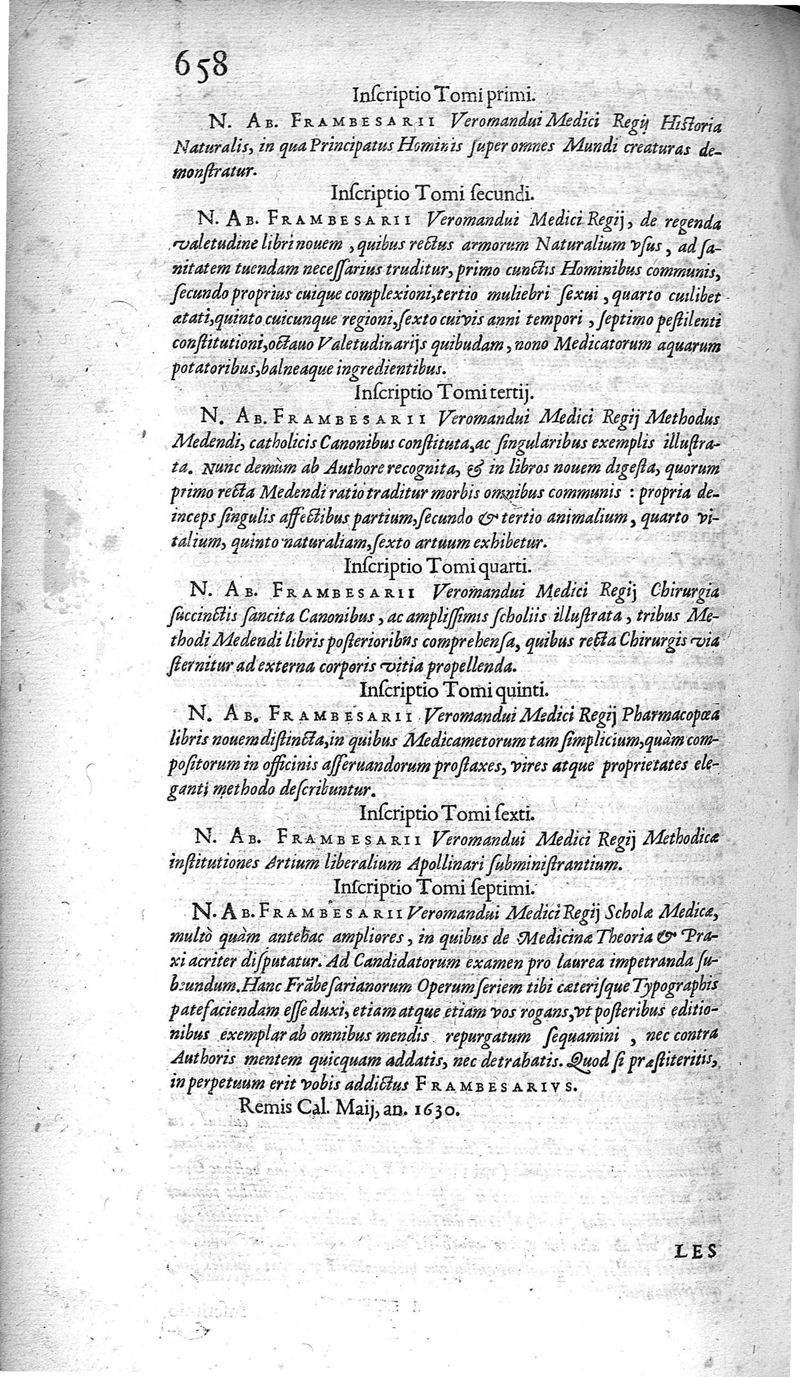 658
Inſcriptio Tomi primi.
N. AB. FRAMBESARII Veromandui Medici Regij Hiſtoria
Naturalis, in qua Principatus Hominis ſuper omnes Mundi creaturas de-
monſtratur.
Inſcriptio Tomi ſecundi.
N. AB. FRAMBESARII Veromandui Medici Regij, de regenda
valetudine libri nouem, quibus rectus armorum Naturalium vſus, ad ſa-
nitatem tuendam neceſſarius truditur, primo cunctis Hominibus communis,
ſecundo proprius cuique complexioni, tertio muliebri ſexui, quarto cuilibet
ætati, quinto cuicunque regioni, ſexto cuivis anni tempori, ſeptimo peſtilenti
conſtitutioni, octauo Valetudinarijs quibuſdam, nono Medicatorum aquarum
potatoribus, balneaque ingredientibus.
Inſcriptio Tomi tertij.
N. AB. FRAMBESARII Veromandui Medici Regij Methodus
Medendi, catholicis Canonibus conſtituta, ac ſingularibus exemplis illuſtra-
ta. Nunc demùm ab Authore recognita, & in libros nouem digeſta, quorum
primo recta Medendi ratio traditur morbis omnibus communis : propria de-
inceps ſingulis affectibus partium, ſecundo & tertio animalium, quarto vi-
talium, quinto naturaliam, ſexto artuum exhibetur.
Inſcriptio Tomi quarti.
N. AB. FRAMBESARII Veromandui Medici Regij Chirurgia
ſuccinctis ſancita Canonibus, ac ampliſſimis ſcholiis illuſtrata, tribus Me-
thodi Medendi libris poſterioribus comprehenſa, quibus recta Chirurgis via
ſternitur ad externa corporis vitia propellenda.
Inſcriptio Tomi quinti.
N. AB. FRAMBESARII Veromandui Medici Regij Pharmacopœa
libris nouem diſtincta, in quibus Medicametorum tam ſimplicium, quàm com-
poſitorum in officinis aſſeruandorum proſtaxes, vires atque proprietates ele-
ganti methodo deſcribuntur.
Inſcriptio Tomi ſexti.
N. AB. FRAMBESARII Veromandui Medici Regij Methodicæ
inſtitutiones Artium liberalium Apollinari ſubminiſtrantium.
Inſcriptio Tomi ſeptimi.
N. AB. FRAMBESARII Veromandui Medici Regij Scholæ Medicæ,
multò quàm antehac ampliores, in quibus de Medicinæ Theoria & Pra-
xi acriter diſputatur. Ad Candidatorum examen pro laurea impetranda ſu-
beundum. Hanc Frābeſarianorum Operum ſeriem tibi cæteriſque Typographis
patefaciendam eſſe duxi, etiam atque etiam vos rogans, vt poſteribus editio-
nibus exemplar ab omnibus mendis repurgatum ſequamini, nec contra
Authoris mentem quicquam addatis, nec detrahatis. Quod ſi præſtiteritis,
in perpetuum erit vobis addictus FRAMBESARIVS.
Remis Cal. Maij, an. 1630.
LES